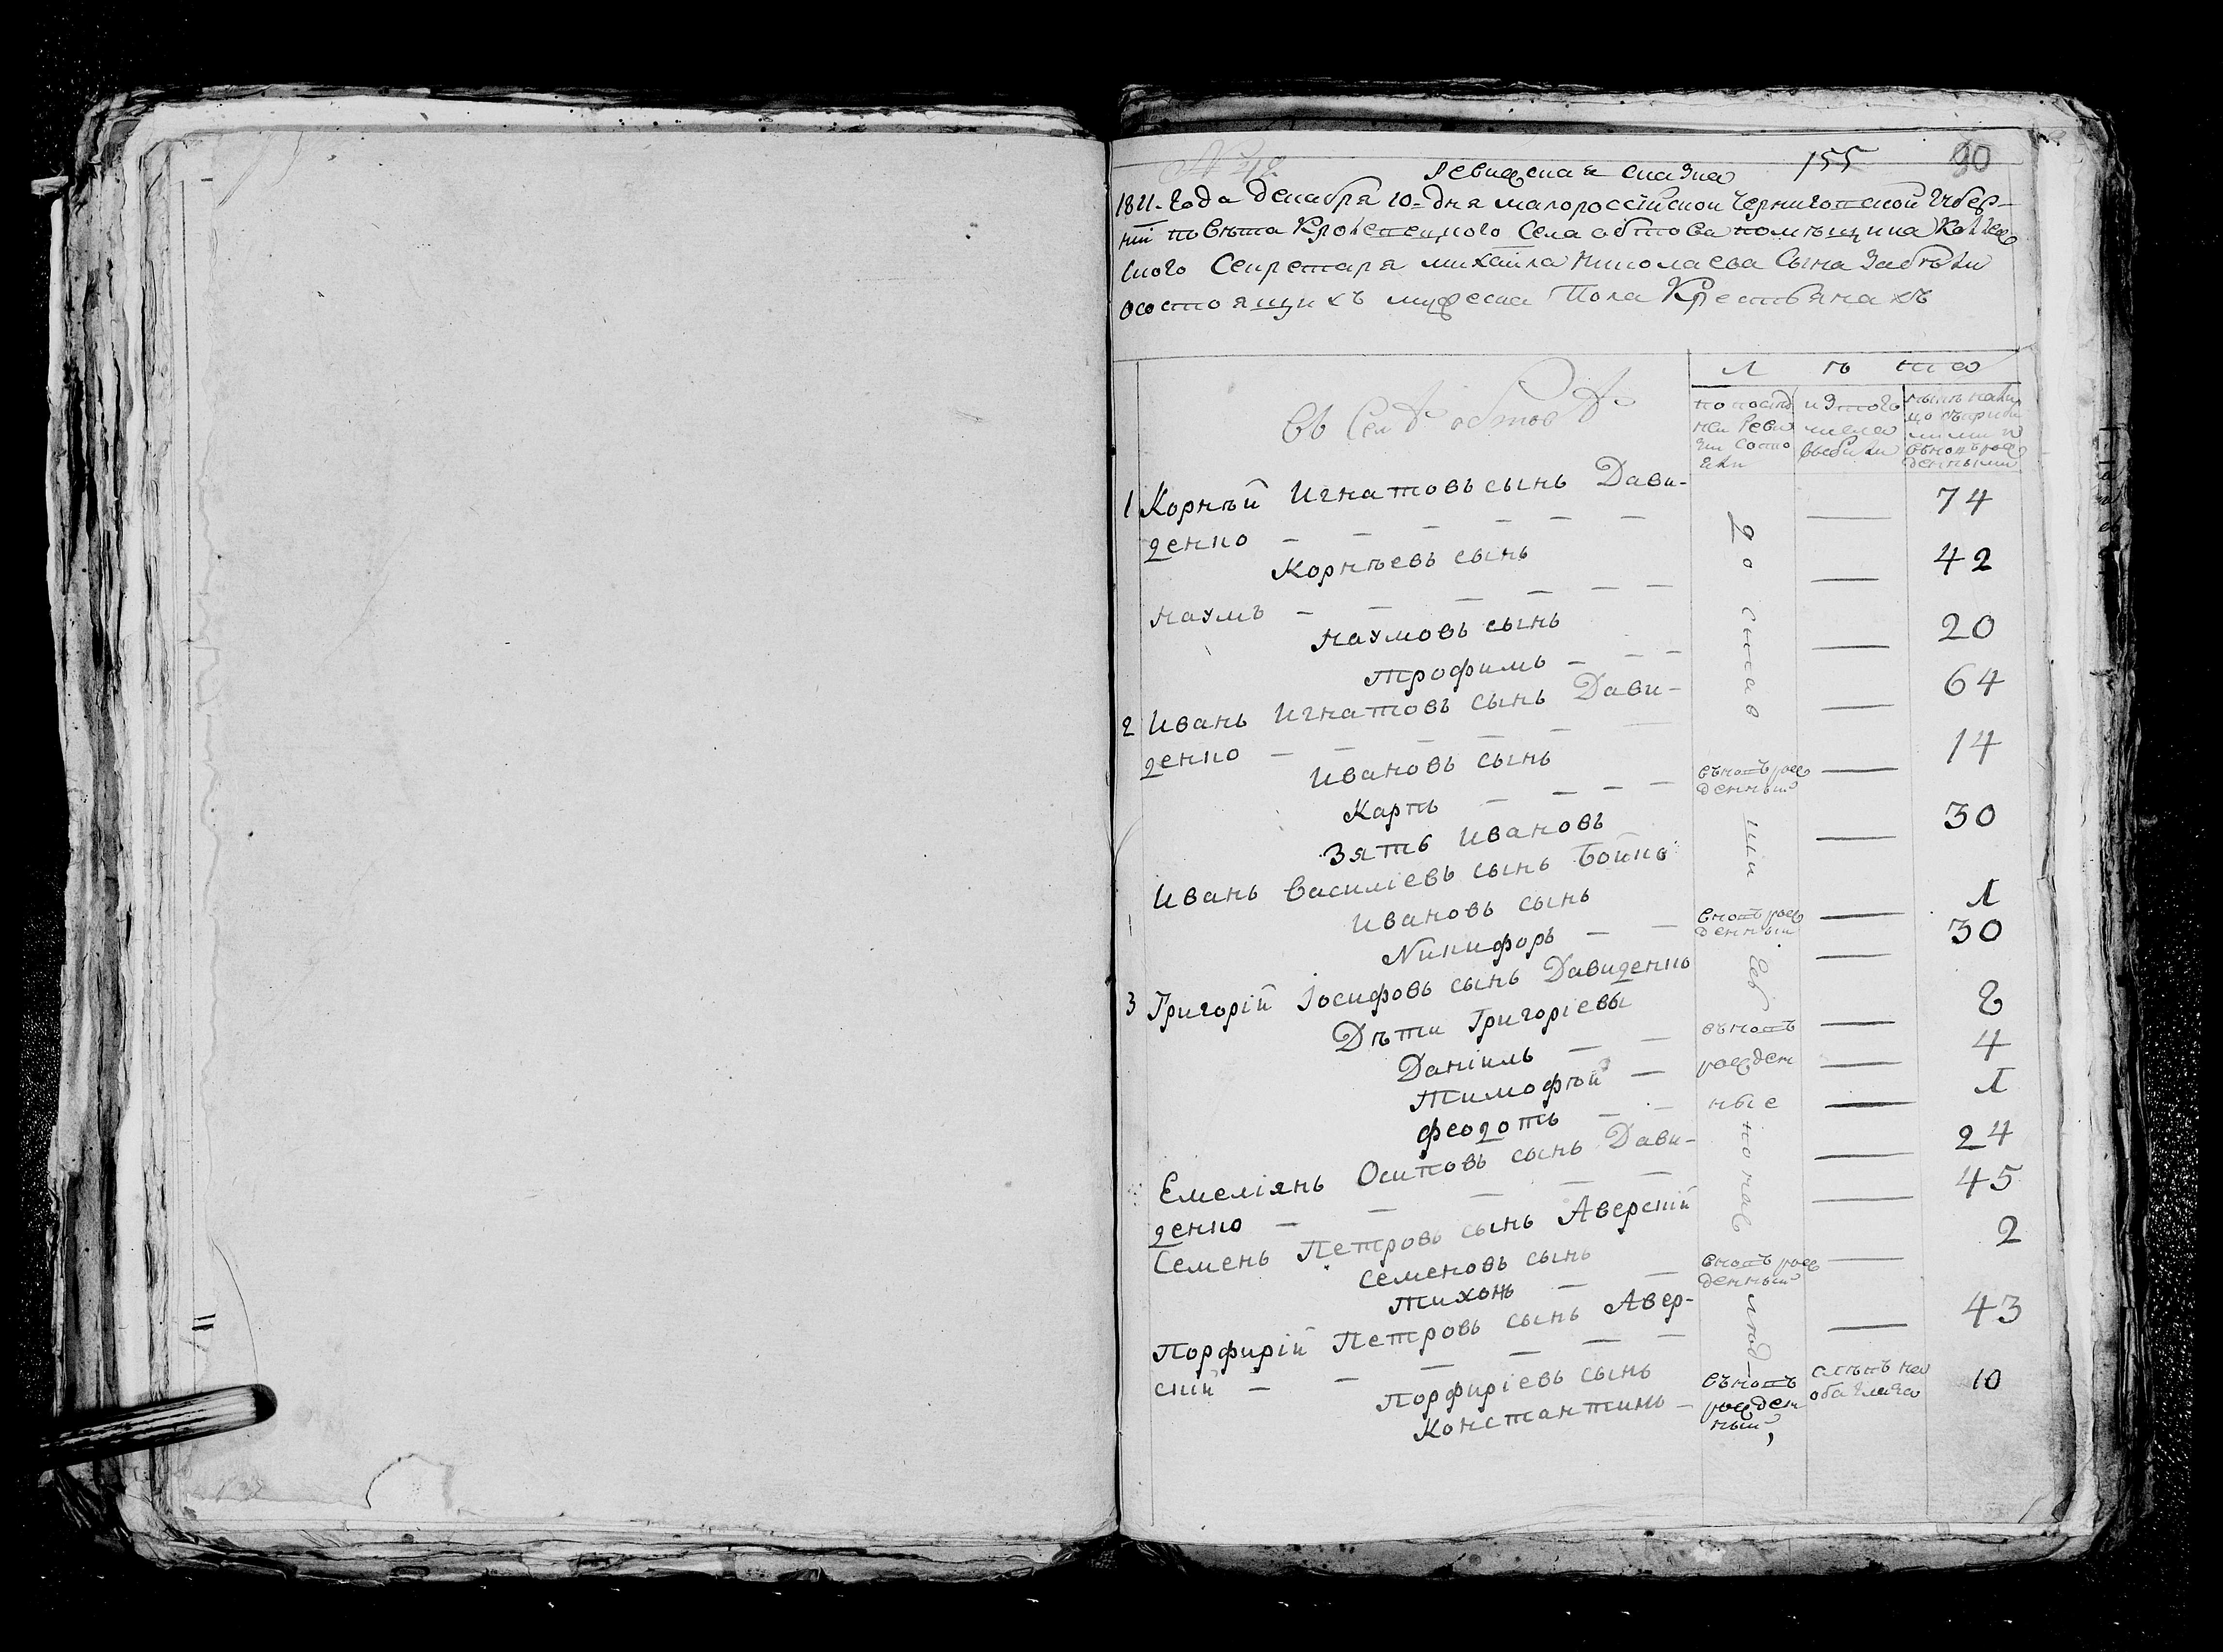 № 42 Ревижская сказка 155 90
1811. Года декабря 10= дня малороссійской Черниговской Губер–
ніи повѣта Кролевецкого Села обтова помѣщика Коллеж
ского Секретаря михайла николаева Сына Забѣлы
осостоящихъ мужеска Пола Крестьянахъ
Л ѣ та
въ Селѣ обтовѣ
по послѣд ней Реви зіи состо яли
изтого числа выбыли
нынѣ налицо съприбылыми и вновьрожденными
1 Корнѣй Игнатовъ сынъ Дави- — 74
денко
Корнѣевъ сынъ — 42
наумъ
наумовъ сынъ — 20
трофимъ
2 Иванъ Игнатовъ сынъ Дави- — 64
денко
Ивановъ сынъ — 14
Карпъ въновьрож денный
Зять Ивановъ — 30
Иванъ василіевъ сынъ Бойко
Ивановъ сынъ — 1
Никифоръ вновьрож денный
3 Григорій Іосифовъ сынъ Давиденко — 30
Дѣти Григоріевы
Даніилъ въновь — 8
тимофѣй рожден — 4
феодотъ ные — 1
Емеліянъ Осиповъ сынъ Дави- — 24
денко
Семенъ Петровъ сынъ Аверскій — 45
Семеновъ сынъ — 2
тихонъ вновьрож денный
Порфирій Петровъ сынъ Авер- — 43
скій
порфиріевъ сынъ
Константинъ въновь рожден ный, слѣпъ на оба глаза 10